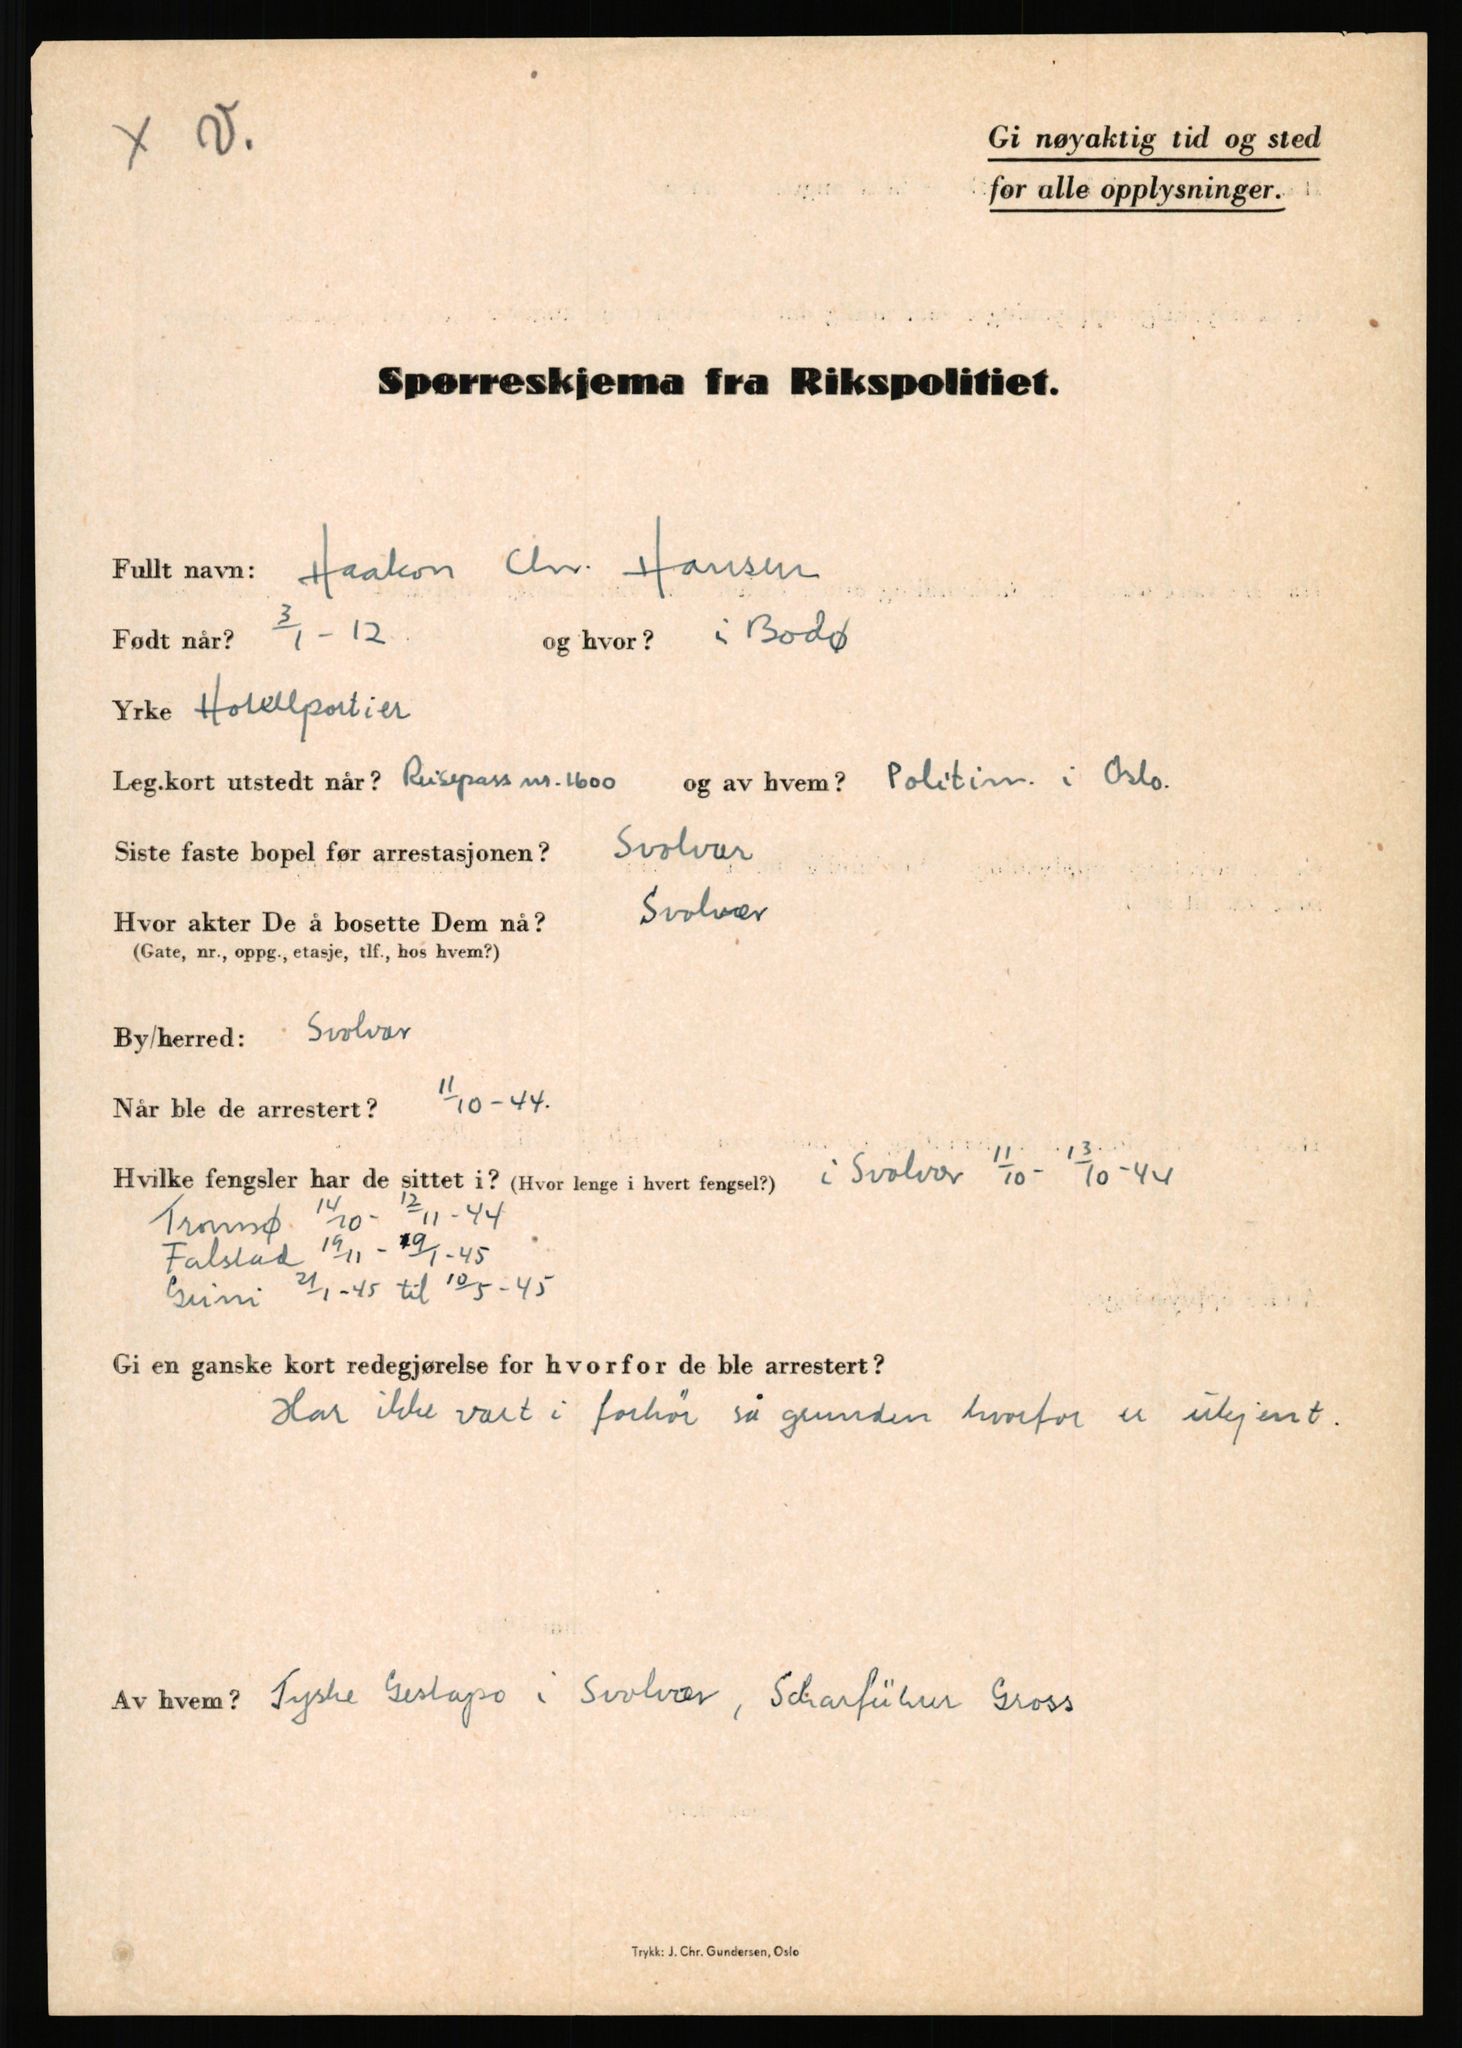 x V.
Gi nøyaktig tid og sted
for alle opplysninger.
Spørreskjema fra Rikspolitiet.
Fullt navn: Haakon Chr. Hansen
Født når? 3/1 - 12 og hvor? i Bodø
Yrke Hotellportier
Leg.kort utstedt når? Reisepass nr. 1600 og av hvem? Politim. i Oslo.
Siste faste bopel før arrestasjonen? Svolvær
Hvor akter De å bosette Dem nå? Svolvær
(Gate, nr., oppg., etasje, tlf., hos hvem?)
By/herred: Svolvær
Når ble de arrestert? 11/10 - 44.
Hvilke fengsler har de sittet i? (Hvor lenge i hvert fengsel?) i Svolvær 11/10 - 13/10 - 44
Tromsø 14/10 - 12/11 - 44
Falstad 19/11 - 19/1 - 45
Grini 21/1 - 45 til 10/5 - 45
Gi en ganske kort redegjørelse for hvorfor de ble arrestert?
Har ikke vært i forhör så grunden hvorfor er ukjent.
Av hvem? Tyske Gestapo i Svolvær, Scharführer Gross
Trykk: J. Chr. Gundersen, Oslo